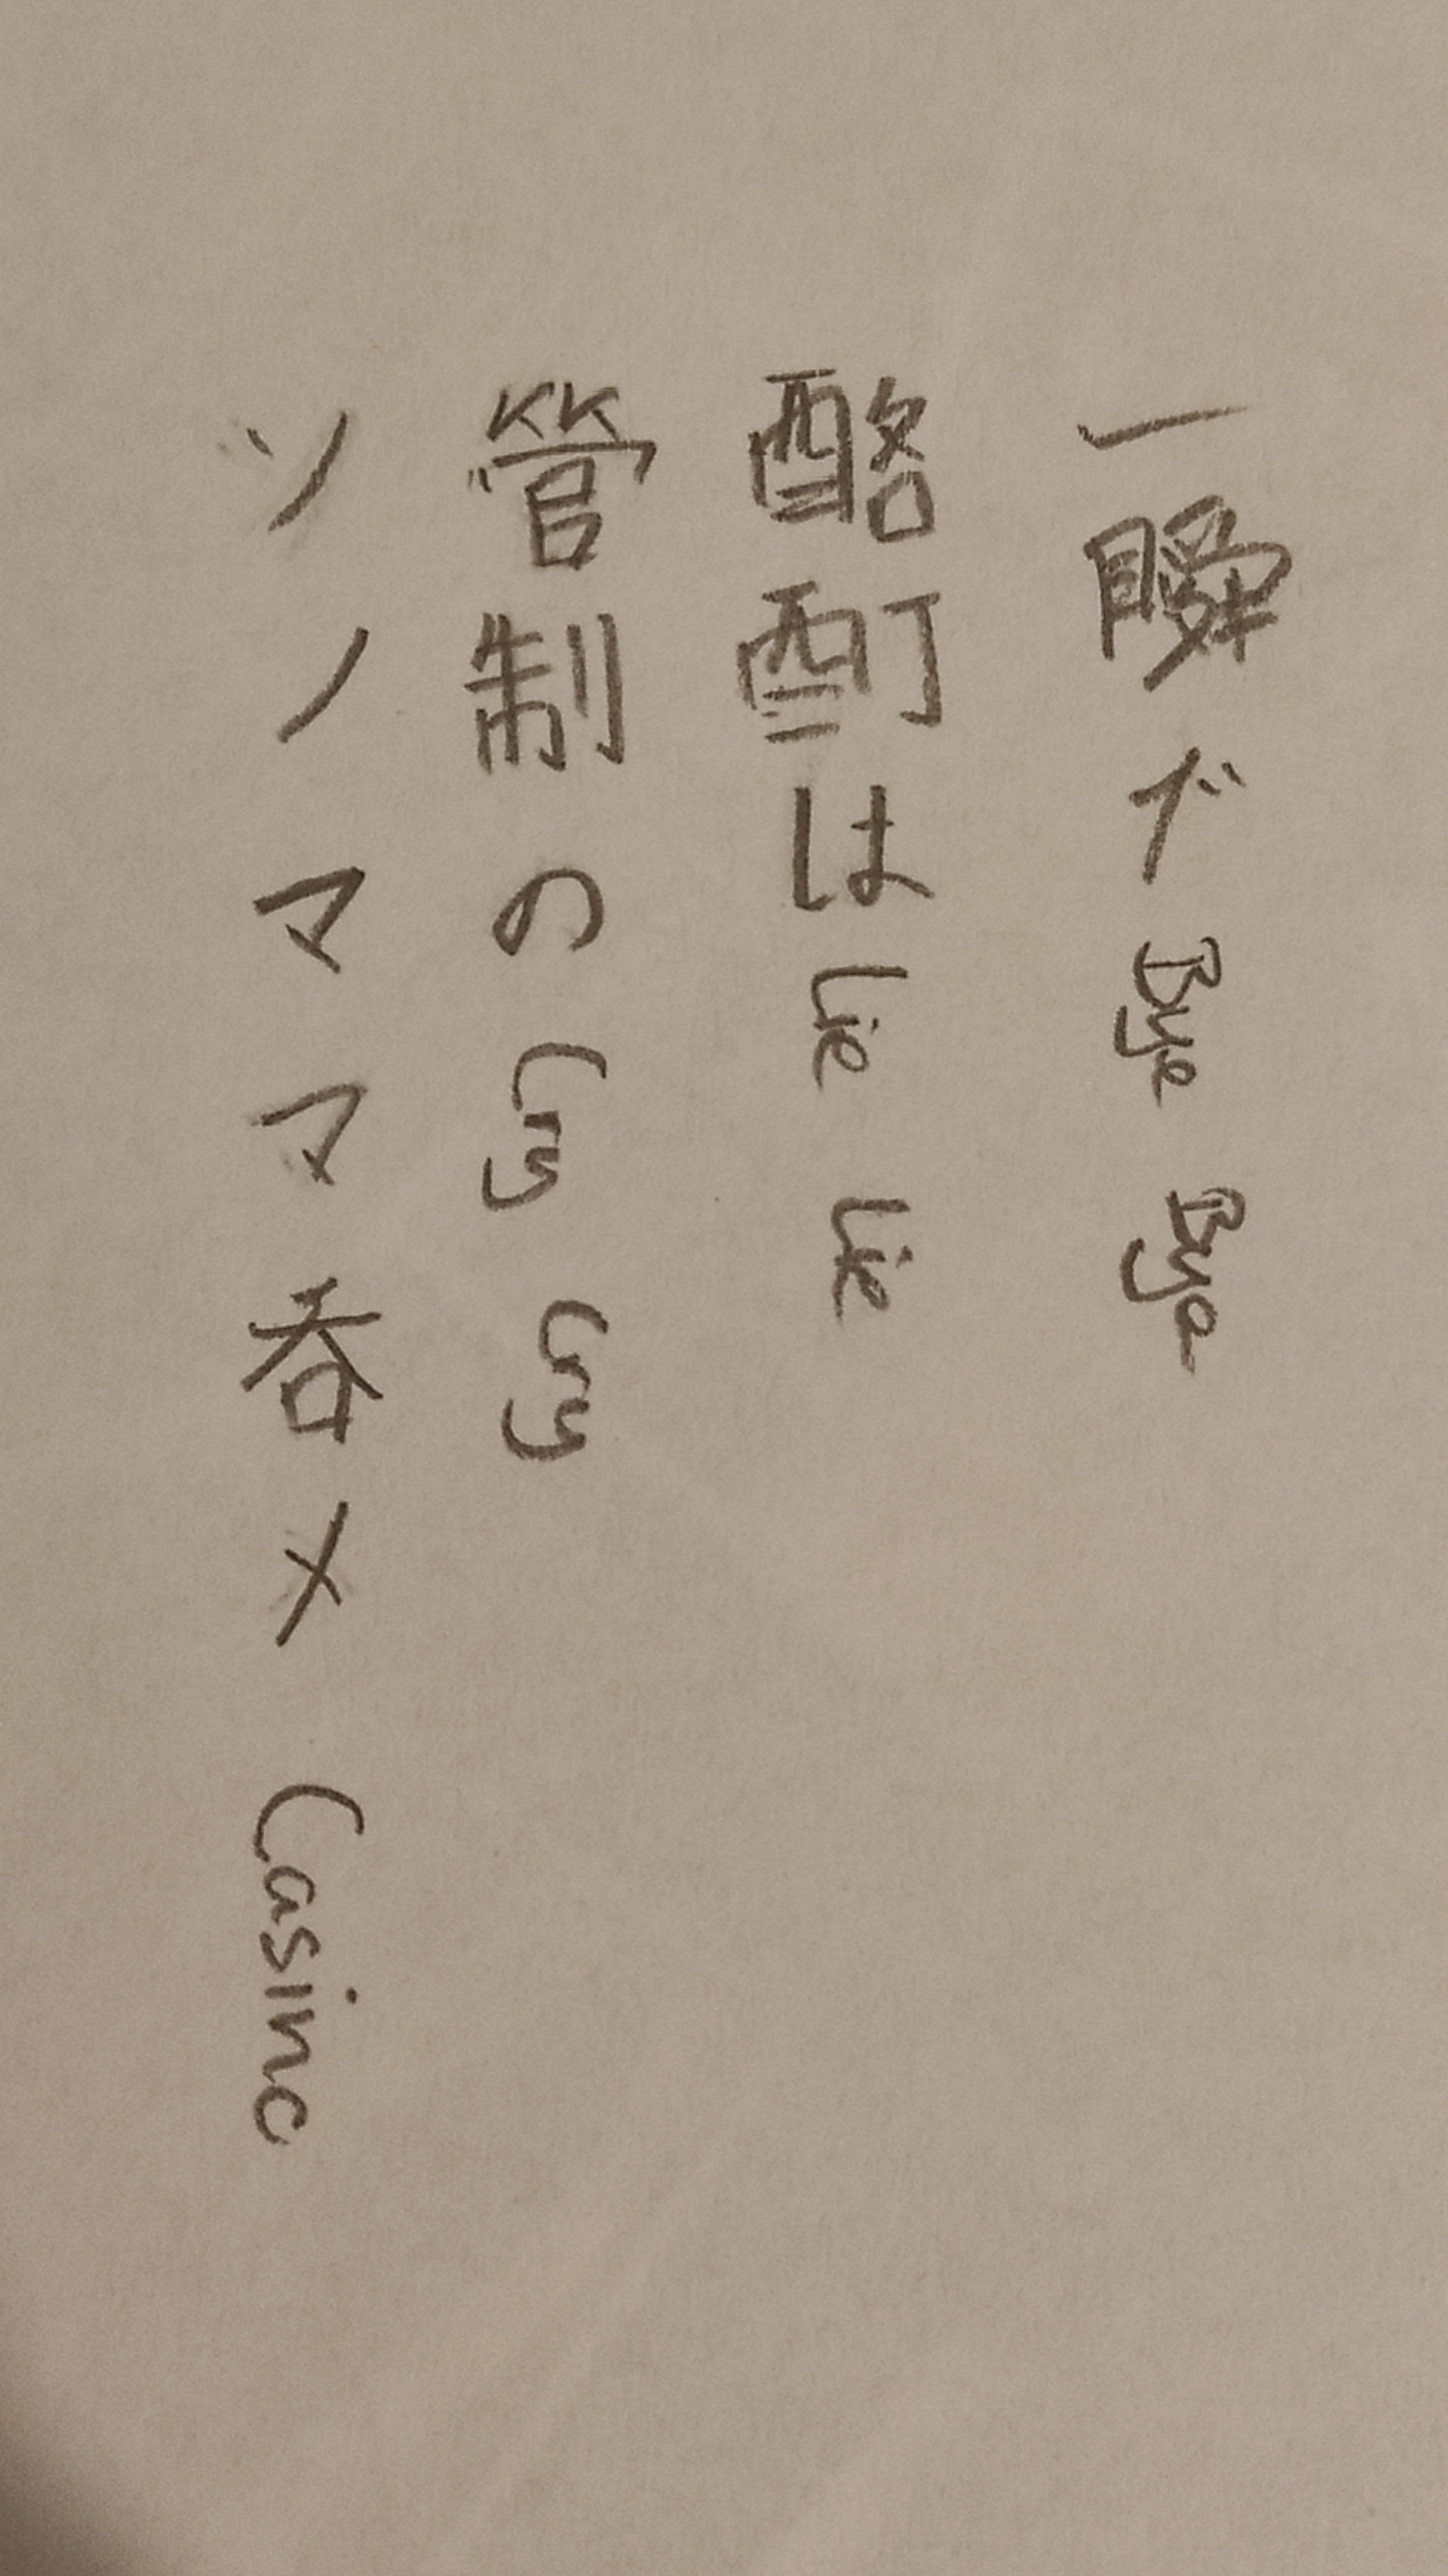 一瞬でBye Bye
酩酊はLie Lie
管制のCry Cry
ソノママ呑メ Casino